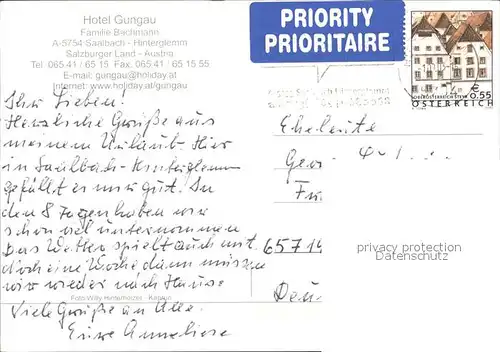 Hotel Gungau
Familie Bachmann
A-5754 Saalbach - Hinterglemm
Salzburger Land - Austria
Tel. 065 41 / 65 15 Fax. 065 41 / 65 15 55
E-Mail: gungau@holiday.at
Internet: www.holiday.at/gungau
PRIORITY
PRIORITAIRE
€ 0.55
ÖSTERREICH
Ihr Lieben!
Herzliche Grüße aus
meinem Urlaub. Hier
in Saalbach-Hinterglemm
gefällt es mir gut. In
den 8 Tagen haben wir
schon viel unternommen
Das Wetter spielt auch mit
doch eine Woche dann müssen
wir wieder nach Hause
Viele Grüße an Alle.
Eure Anneliese
Eheleute
Geor
65714
privacy protection
Datenschutz
Foto Willy Hinterholzer - Kaprun